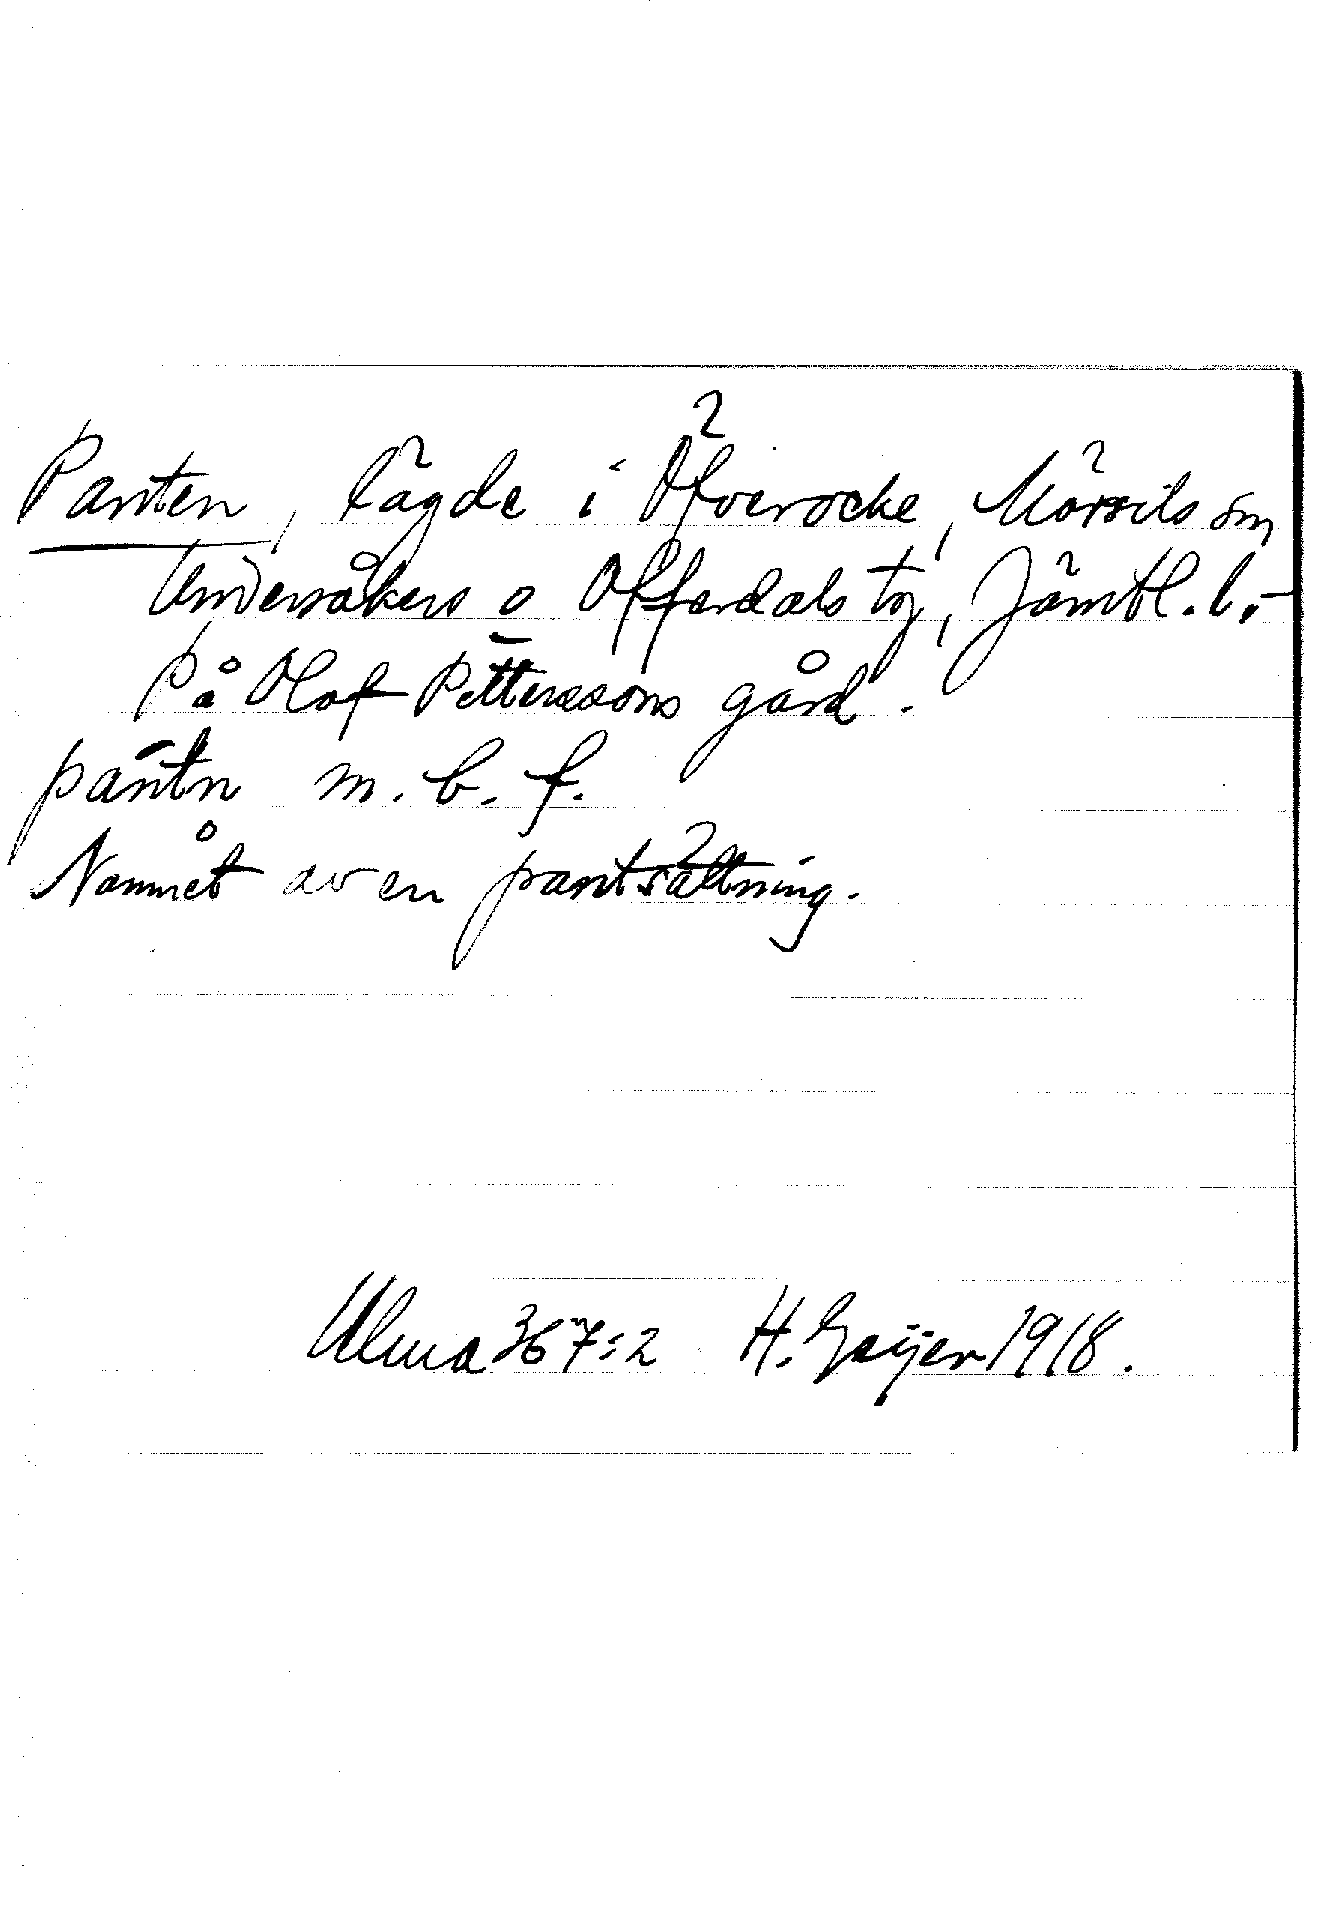 Panten, lägde i Öfverocke, Mörsils sn
Undersåkers o Offerdals tg, Jämtl. l.
På Olof Petterssons gård.
pantn m. b. f.
Namnet av en pantsättning.
Ulma 367:2 H. Geijer 1918.